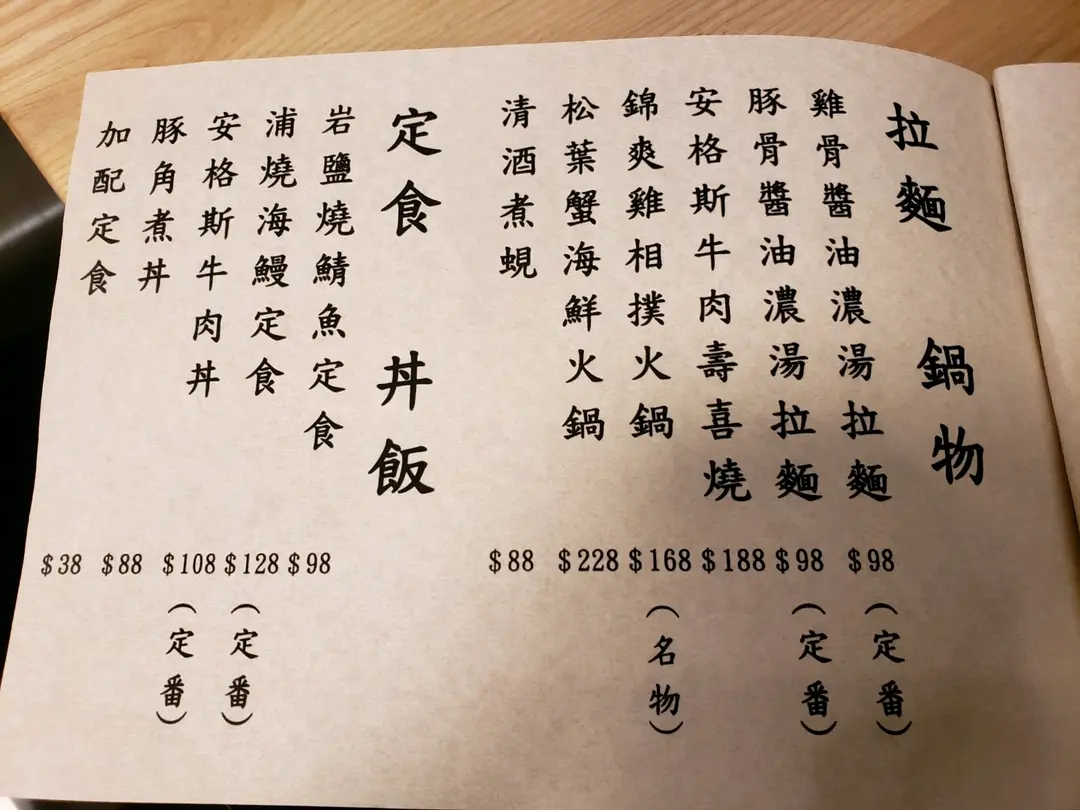 拉麵 鍋物
雞骨醬油濃湯拉麵 $98 (定番)
豚骨醬油濃湯拉麵 $98 (定番)
安格斯牛肉壽喜燒 $188
錦爽雞相撲火鍋 $168 (名物)
松葉蟹海鮮火鍋 $228
清酒煮蜆 $88
定食 丼飯
岩鹽燒鯖魚定食 $98
浦燒海鰻定食 $128 (定番)
安格斯牛肉丼 $108 (定番)
豚角煮丼 $88
加配定食 $38